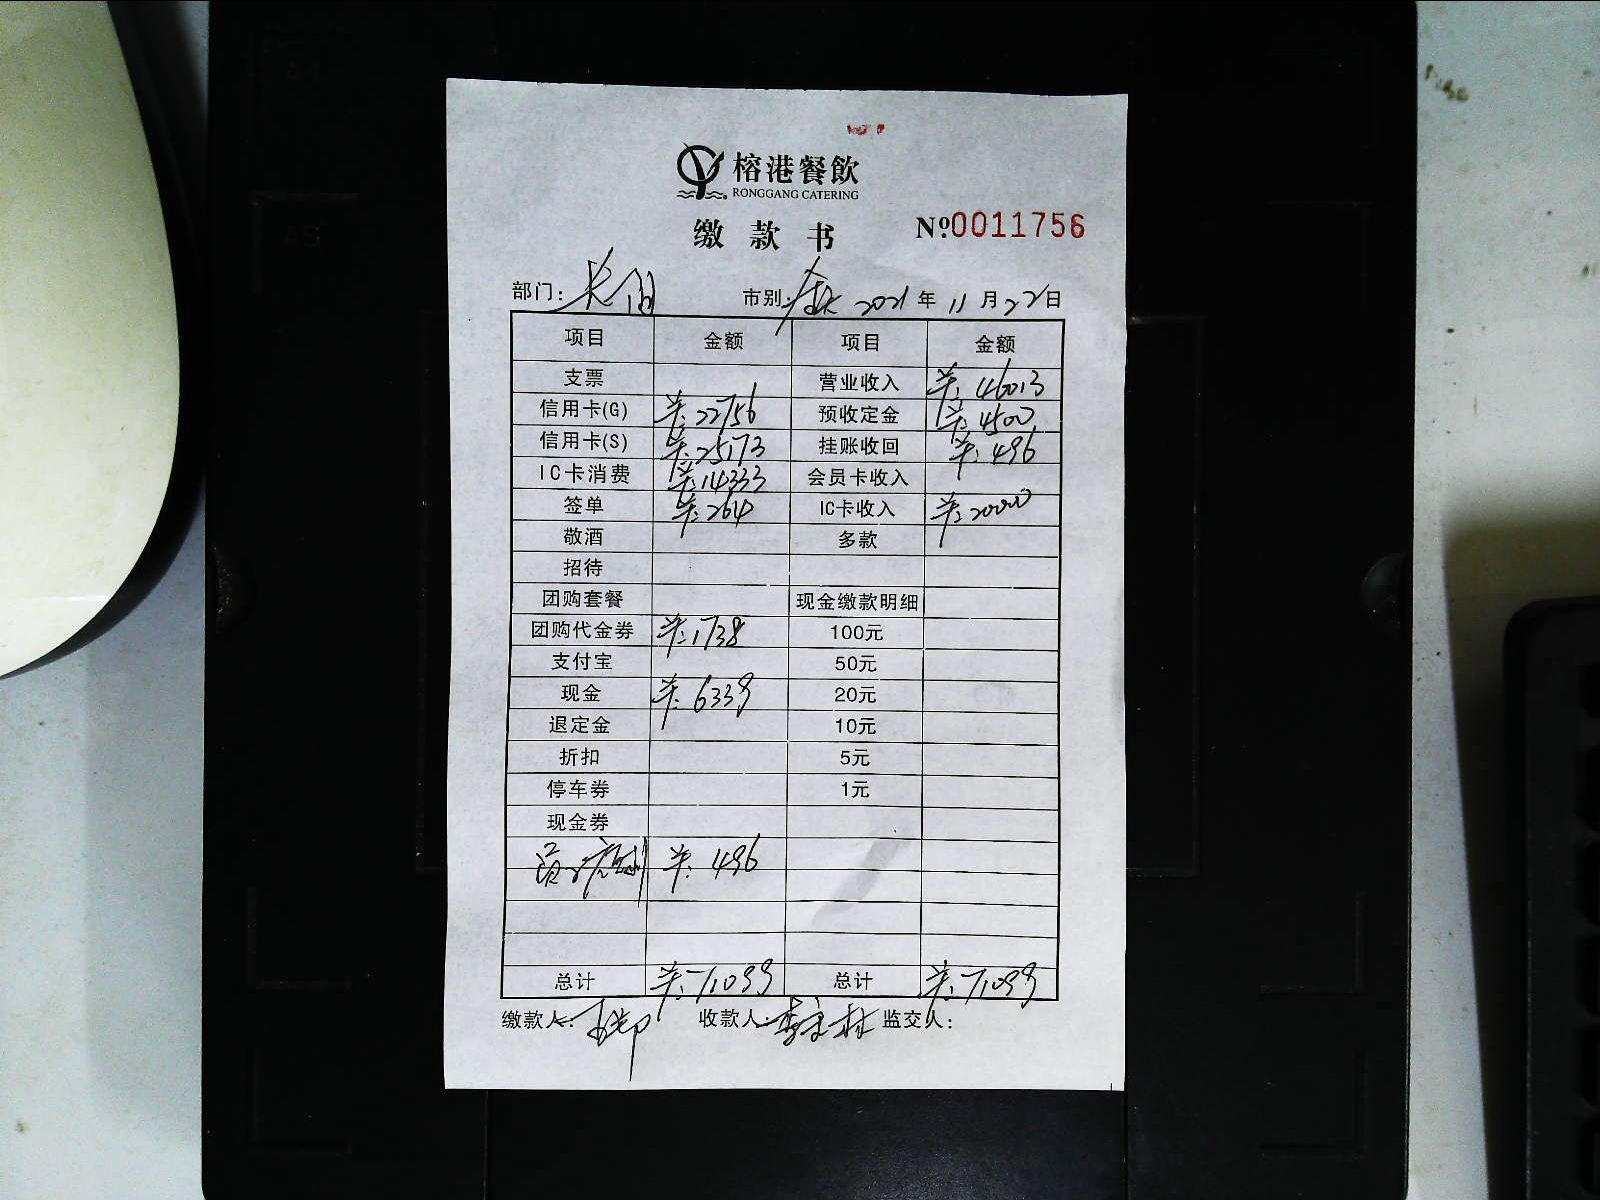 榕港餐飲
RONGGANG CATERING
缴款书 Nº0011756
部门: 市别: 2021年11月22日
项目 金额 项目 金额
支票 营业收入 ¥:46103
信用卡(G) ¥:22756 预收定金 ¥:4500
信用卡(S) ¥:25173 挂账收回 ¥:496
IC卡消费 ¥:14333 会员卡收入
签单 ¥:264 IC卡收入 ¥:20000
敬酒 多款
招待
团购套餐 现金缴款明细
团购代金券 ¥:1738 100元
支付宝 50元
现金 ¥:6339 20元
退定金 10元
折扣 5元
停车券 1元
现金券
¥:496
总计 ¥:71099 总计 ¥:71099
缴款人: 收款人: 监交人: